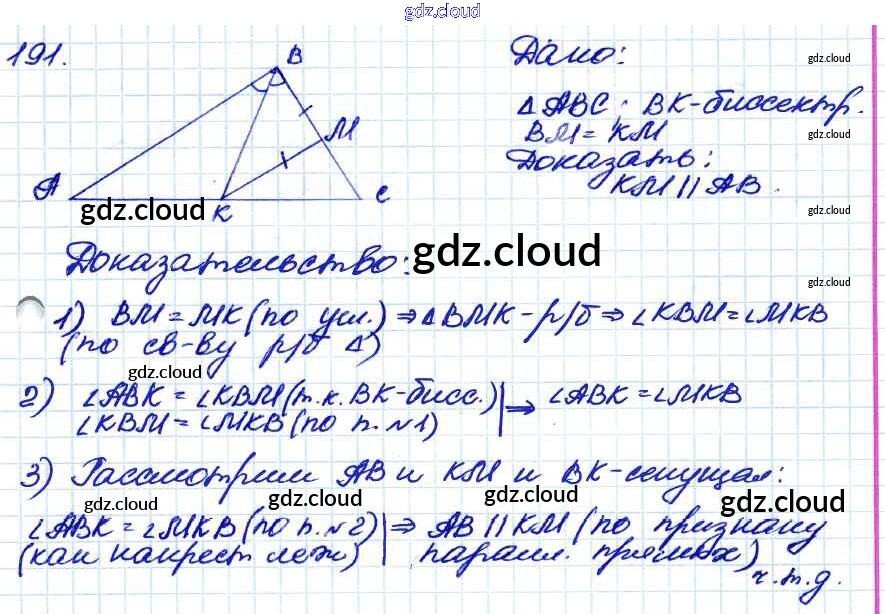 gdz.cloud
191.
B
M
A
K
C
gdz.cloud
Дано:
gdz.cloud
△ABC; BK-биссектр.
gdz.cloud
BM = KM
gdz.cloud
Доказать:
KM || AB.
gdz.cloud
Доказательство:
gdz.cloud
gdz.cloud
1) BM = MK (по усл.) ⇒ △BMK - р/б ⇒ ∠KBM = ∠MKB
(по св-ву р/б △)
gdz.cloud
gdz.cloud
2) ∠ABK = ∠KBM (т.к. BK-бисс.) | ⇒ ∠ABK = ∠MKB
∠KBM = ∠MKB (по п. №1)
gdz.cloud
3) Рассмотрим AB и KM и BK-секущая:
gdz.cloud
gdz.cloud
gdz.cloud
gdz.cloud
∠ABK = ∠MKB (по п. №2) | ⇒ AB || KM (по признаку
(как накрест леж) паралл. прямых)
ч.т.д.